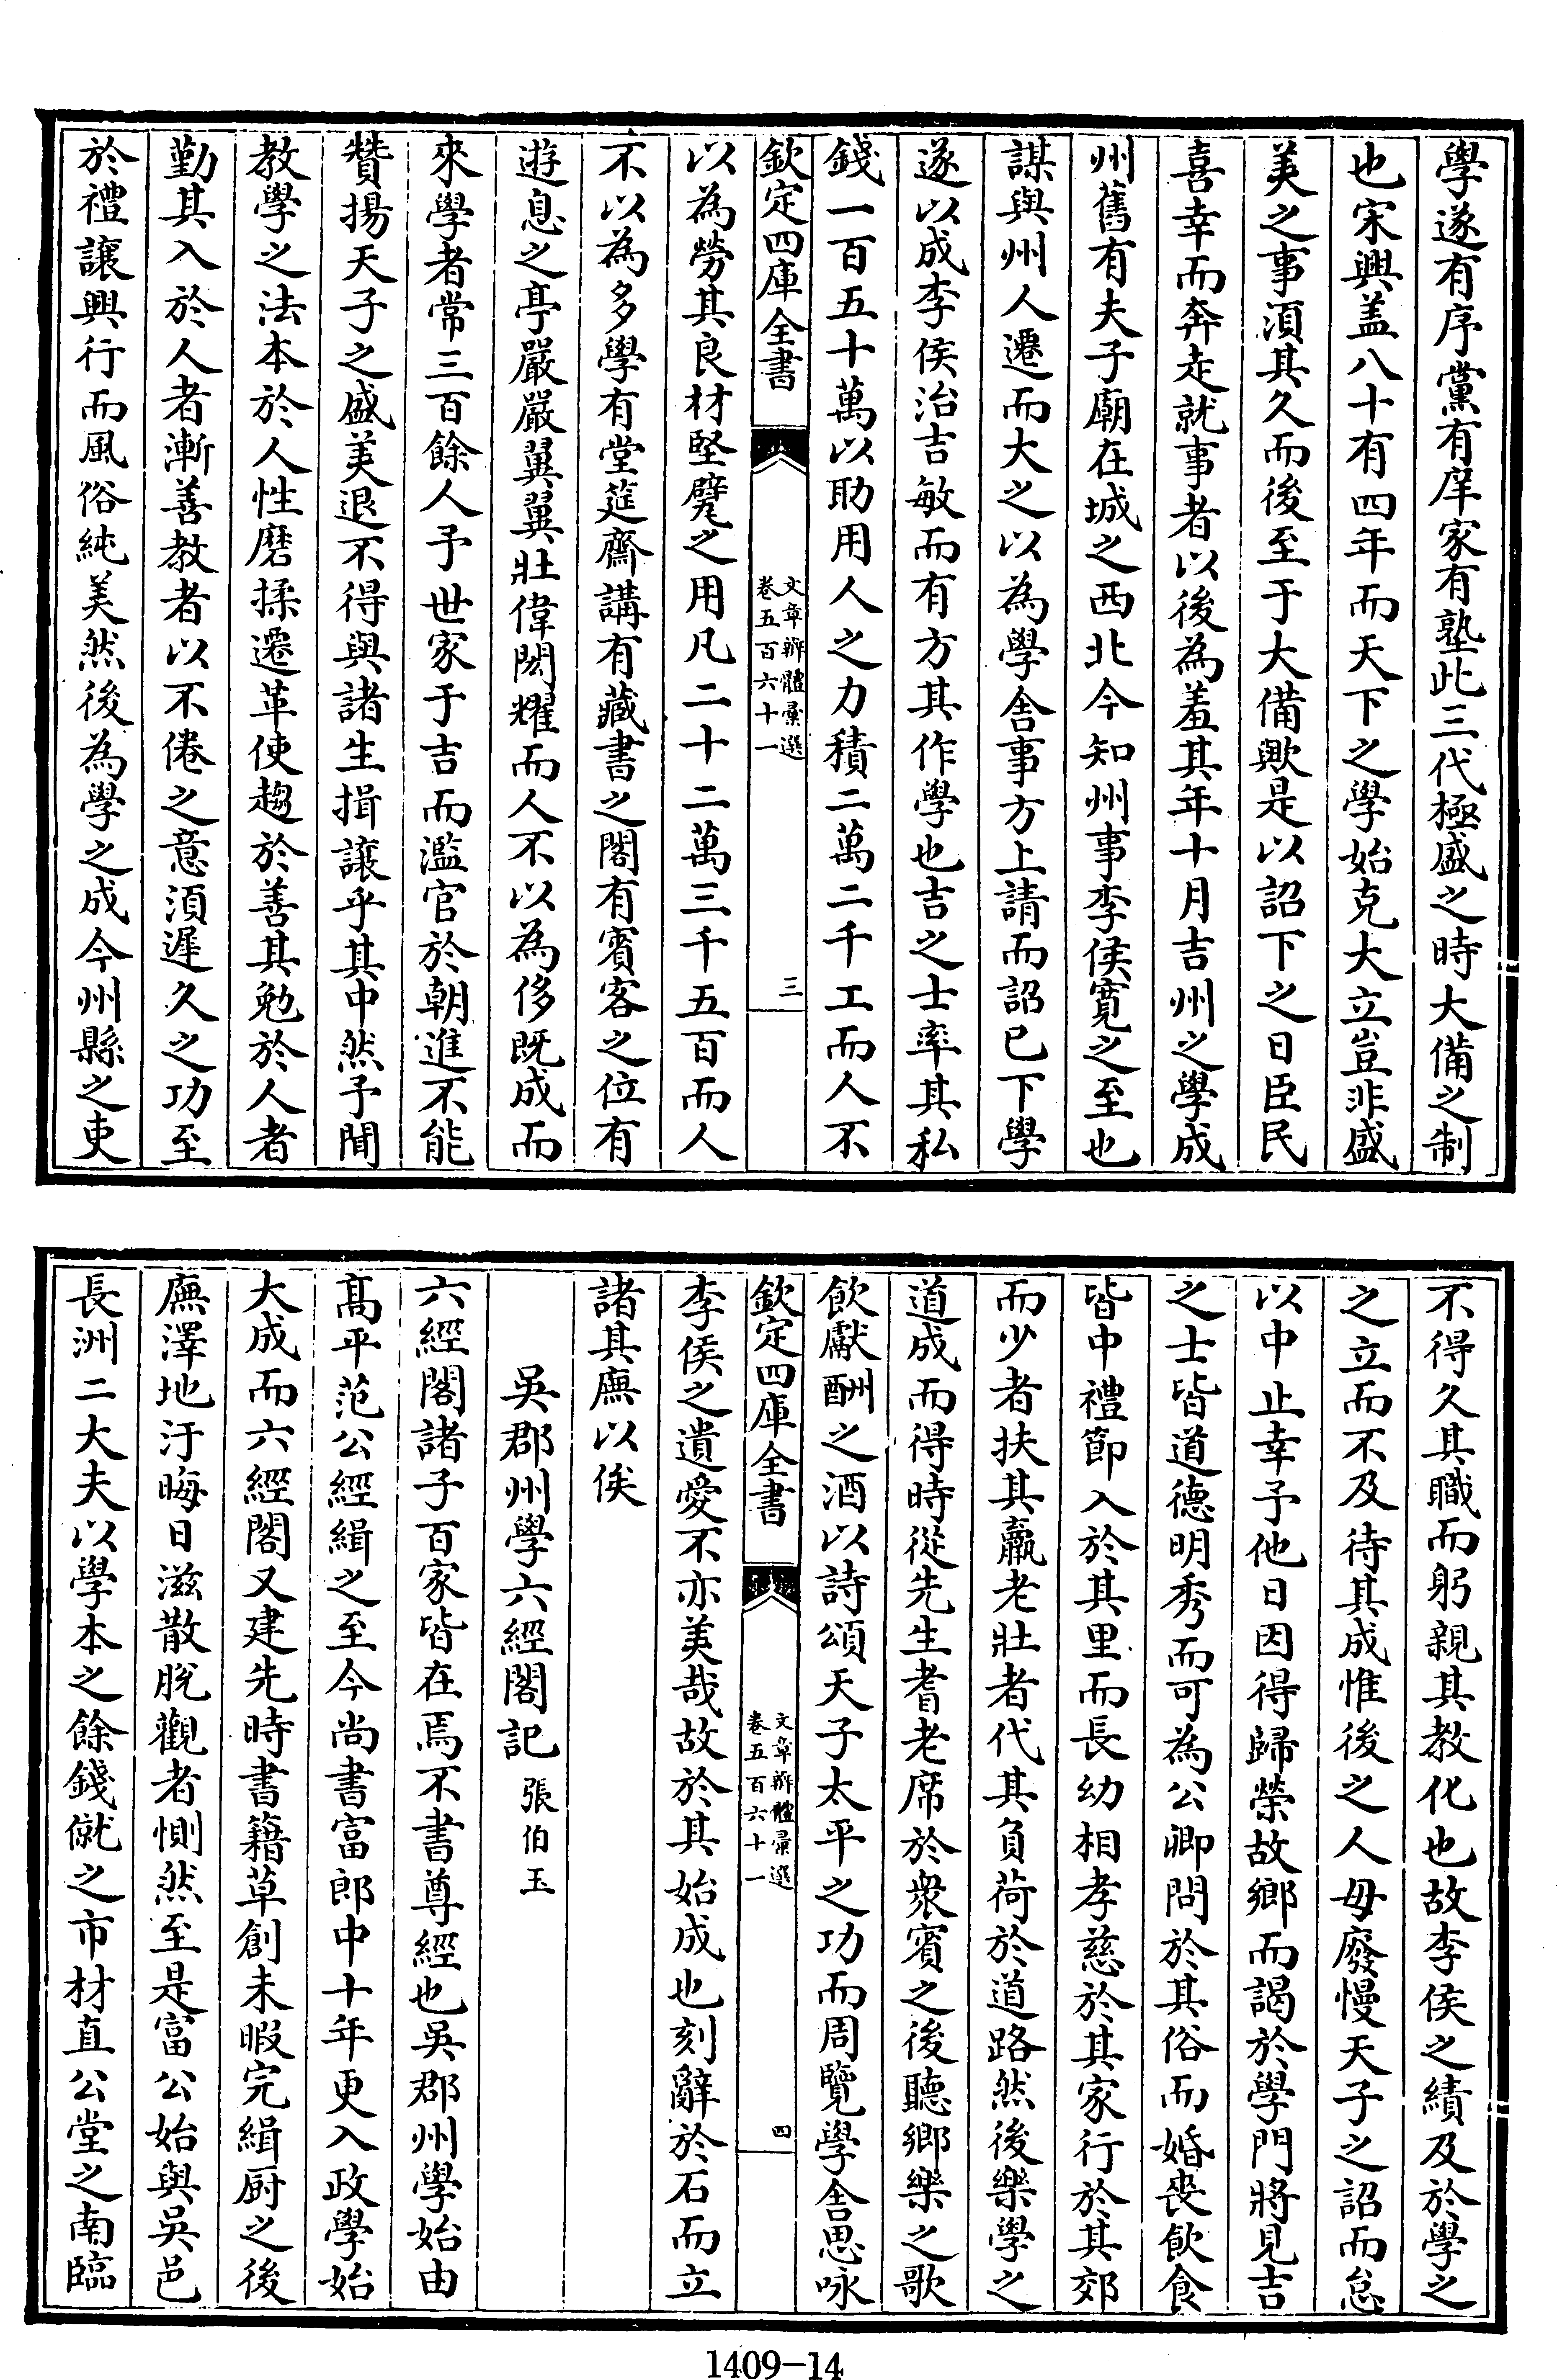 學遂有序黨有庠家有塾此三代極盛之時大備之制
也宋興盖八十有四年而天下之學始克大立豈非盛
美之事須其久而後至于大備歟是以詔下之日臣民
喜幸而奔走就事者以後為羞其年十月吉州之學成
州舊有夫子廟在城之西北今知州事李侯寛之至也
謀與州人遷而大之以為學舍事方上請而詔已下學
遂以成李侯治吉敏而有方其作學也吉之士率其私
錢一百五十萬以助用人之力積二萬二千工而人不
欽定四庫全書
文章辨體彚選
卷五百六十一
三
以為勞其良材堅甓之用凡二十二萬三千五百而人
不以為多學有堂筵齋講有藏書之閣有賓客之位有
遊息之亭嚴嚴翼翼壯偉閎耀而人不以為侈既成而
來學者常三百餘人予世家于吉而濫官於朝進不能
贊揚天子之盛美退不得與諸生揖讓乎其中然予聞
教學之法本於人性磨揉遷革使趨於善其勉於人者
勤其入於人者漸善教者以不倦之意須遲久之功至
於禮讓興行而風俗純美然後為學之成今州縣之吏
不得久其職而躬親其教化也故李侯之績及於學之
之立而不及待其成惟後之人毋廢慢天子之詔而怠
以中止幸予他日因得歸榮故鄉而謁於學門將見吉
之士皆道德明秀而可為公卿問於其俗而婚喪飲食
皆中禮節入於其里而長幼相孝慈於其家行於其郊
而少者扶其羸老壯者代其負荷於道路然後樂學之
道成而得時從先生耆老席於衆賓之後聽鄉樂之歌
飲獻酬之酒以詩頌天子太平之功而周覽學舍思咏
欽定四庫全書
文章辨體彚選
卷五百六十一
四
李侯之遺愛不亦美哉故於其始成也刻辭於石而立
諸其廡以俟
吳郡州學六經閣記 張伯玉
六經閣諸子百家皆在焉不書尊經也吳郡州學始由
髙平范公經緝之至今尚書富郎中十年更入政學始
大成而六經閣又建先時書籍草創未暇完緝厨之後
廡澤地汙晦日滋散脫觀者惻然至是富公始與吳邑
長洲二大夫以學本之餘錢僦之市材直公堂之南臨
1409-14